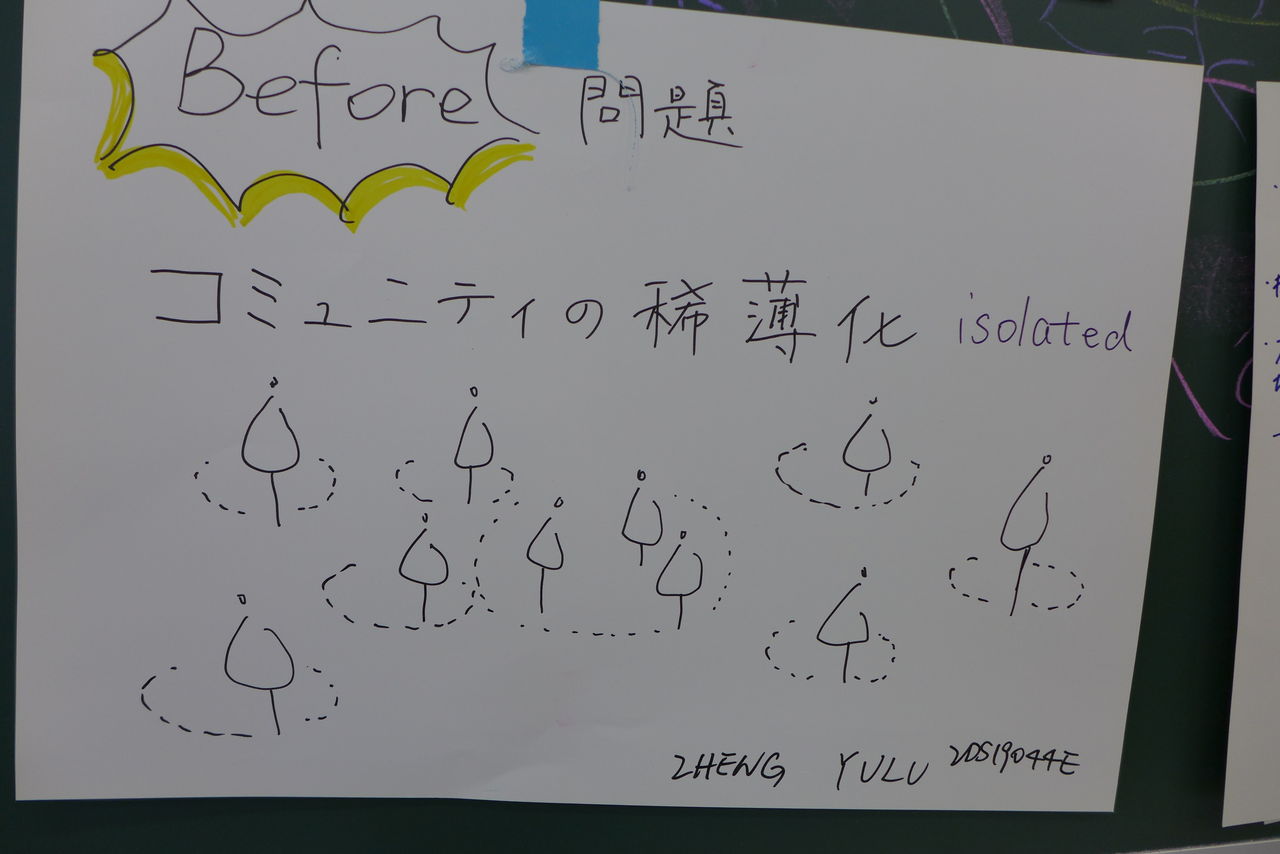 Before 問題
コミュニティの稀薄化 isolated
ZHENG YULU 2DS19044E